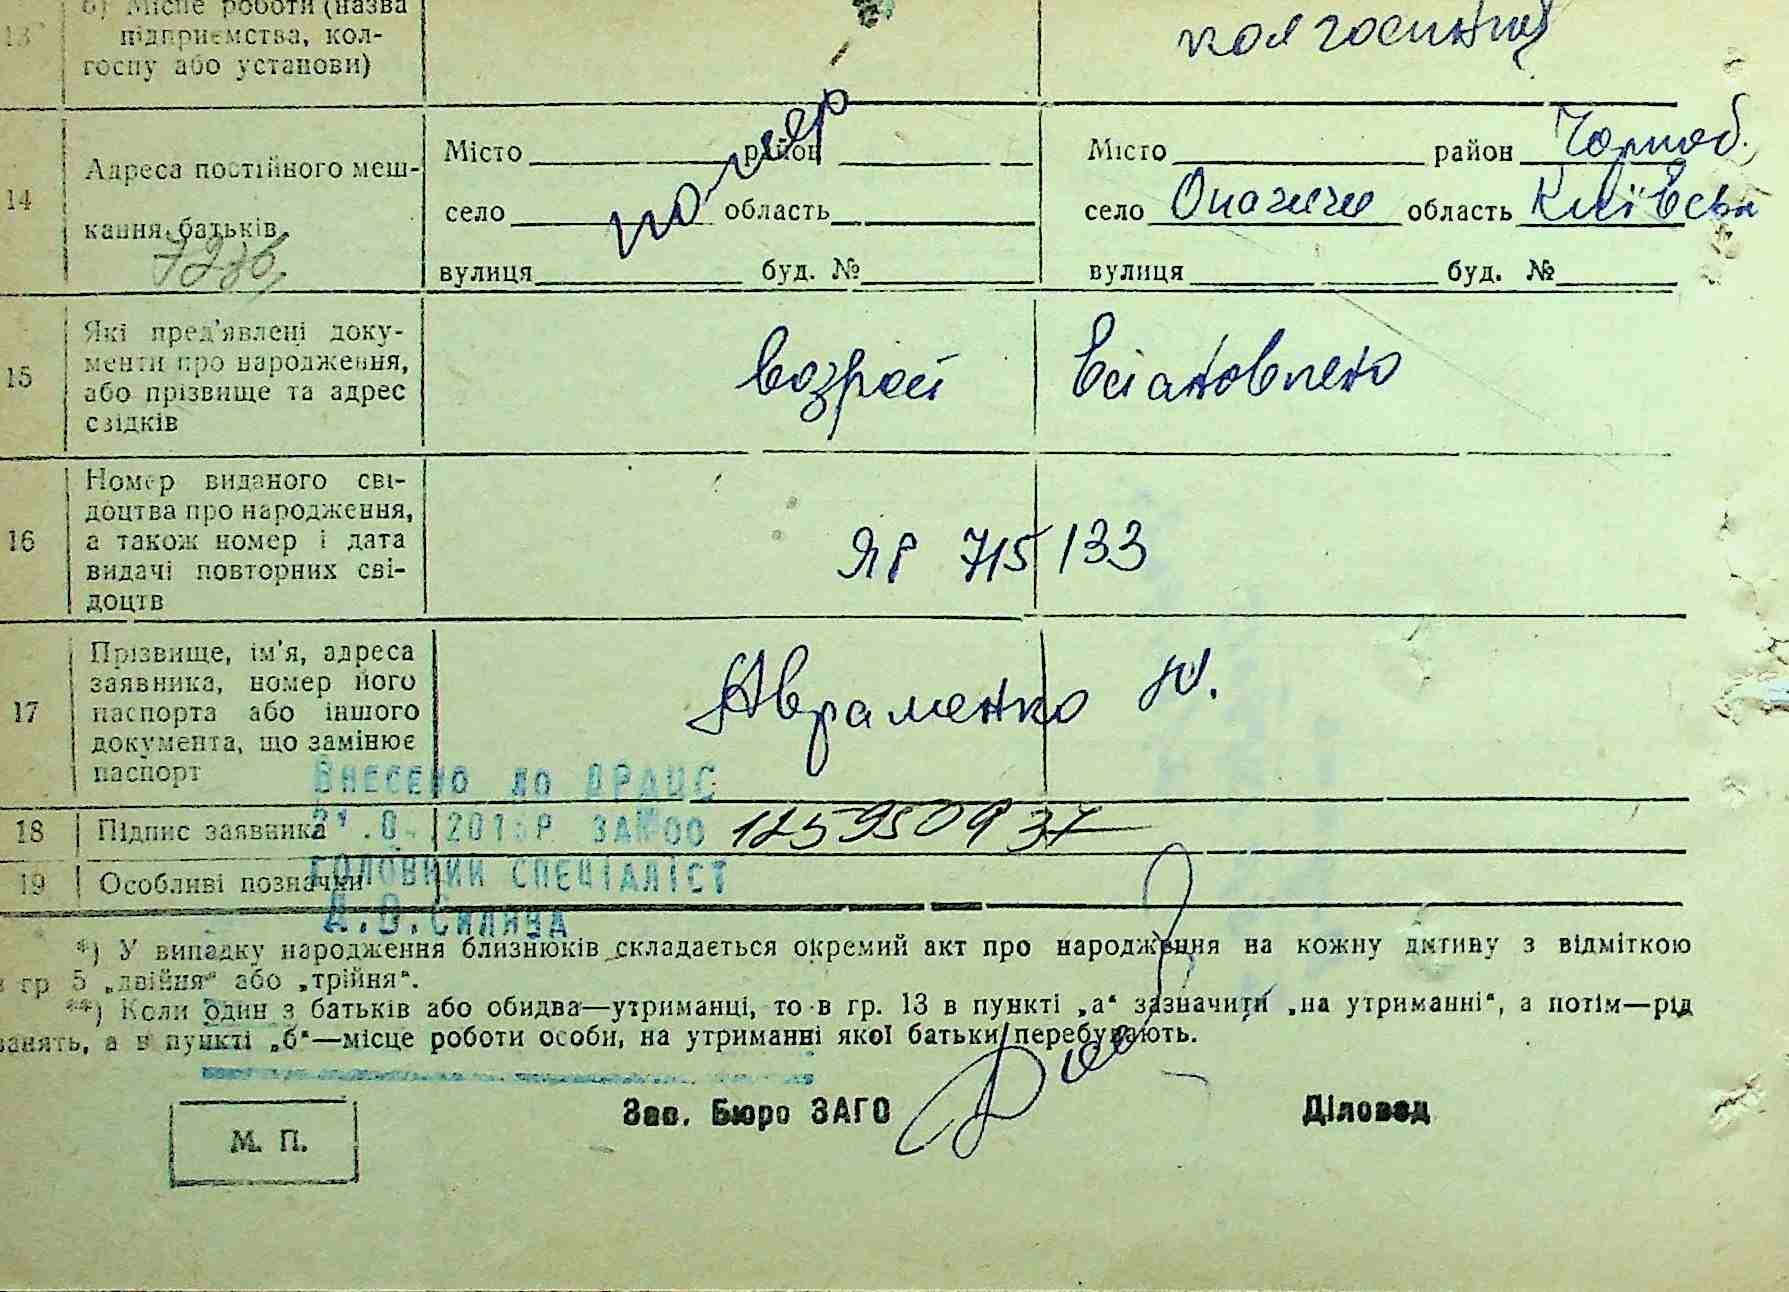 б) Місце роботи (назва
13 підприємства, кол-
госпу або установи)
колгоспниця
14 Адреса постійного меш-
кання батьків
Місто район
село область
вулиця буд. №
помер
Місто район Чорноб.
село Опачичі область Київськ
вулиця буд. №
15 Які пред'явлені доку-
менти про народження,
або прізвище та адрес
свідків
возраст встановлено
16 Номер виданого сві-
доцтва про народження,
а також номер і дата
видачі повторних сві-
доцтв
ЯР 715133
17 Прізвище, ім'я, адреса
заявника, номер його
паспорта або іншого
документа, що замінює
паспорт
Авраменко Ю.
Внесено до ДРАЦС
18 Підпис заявника
12595093
19 Особливі позначки
головний спеціаліст
*) У випадку народження близнюків складається окремий акт про народження на кожну дитину з відміткою
в гр 5 „двійня“ або „трійня“.
**) Коли один з батьків або обидва—утриманці, то в гр. 13 в пункті „а“ зазначити „на утриманні“, а потім—рід
занять, а в пункті „б“—місце роботи особи, на утриманні якої батьки перебувають.
Зав. Бюро ЗАГС Діловод
М. П.